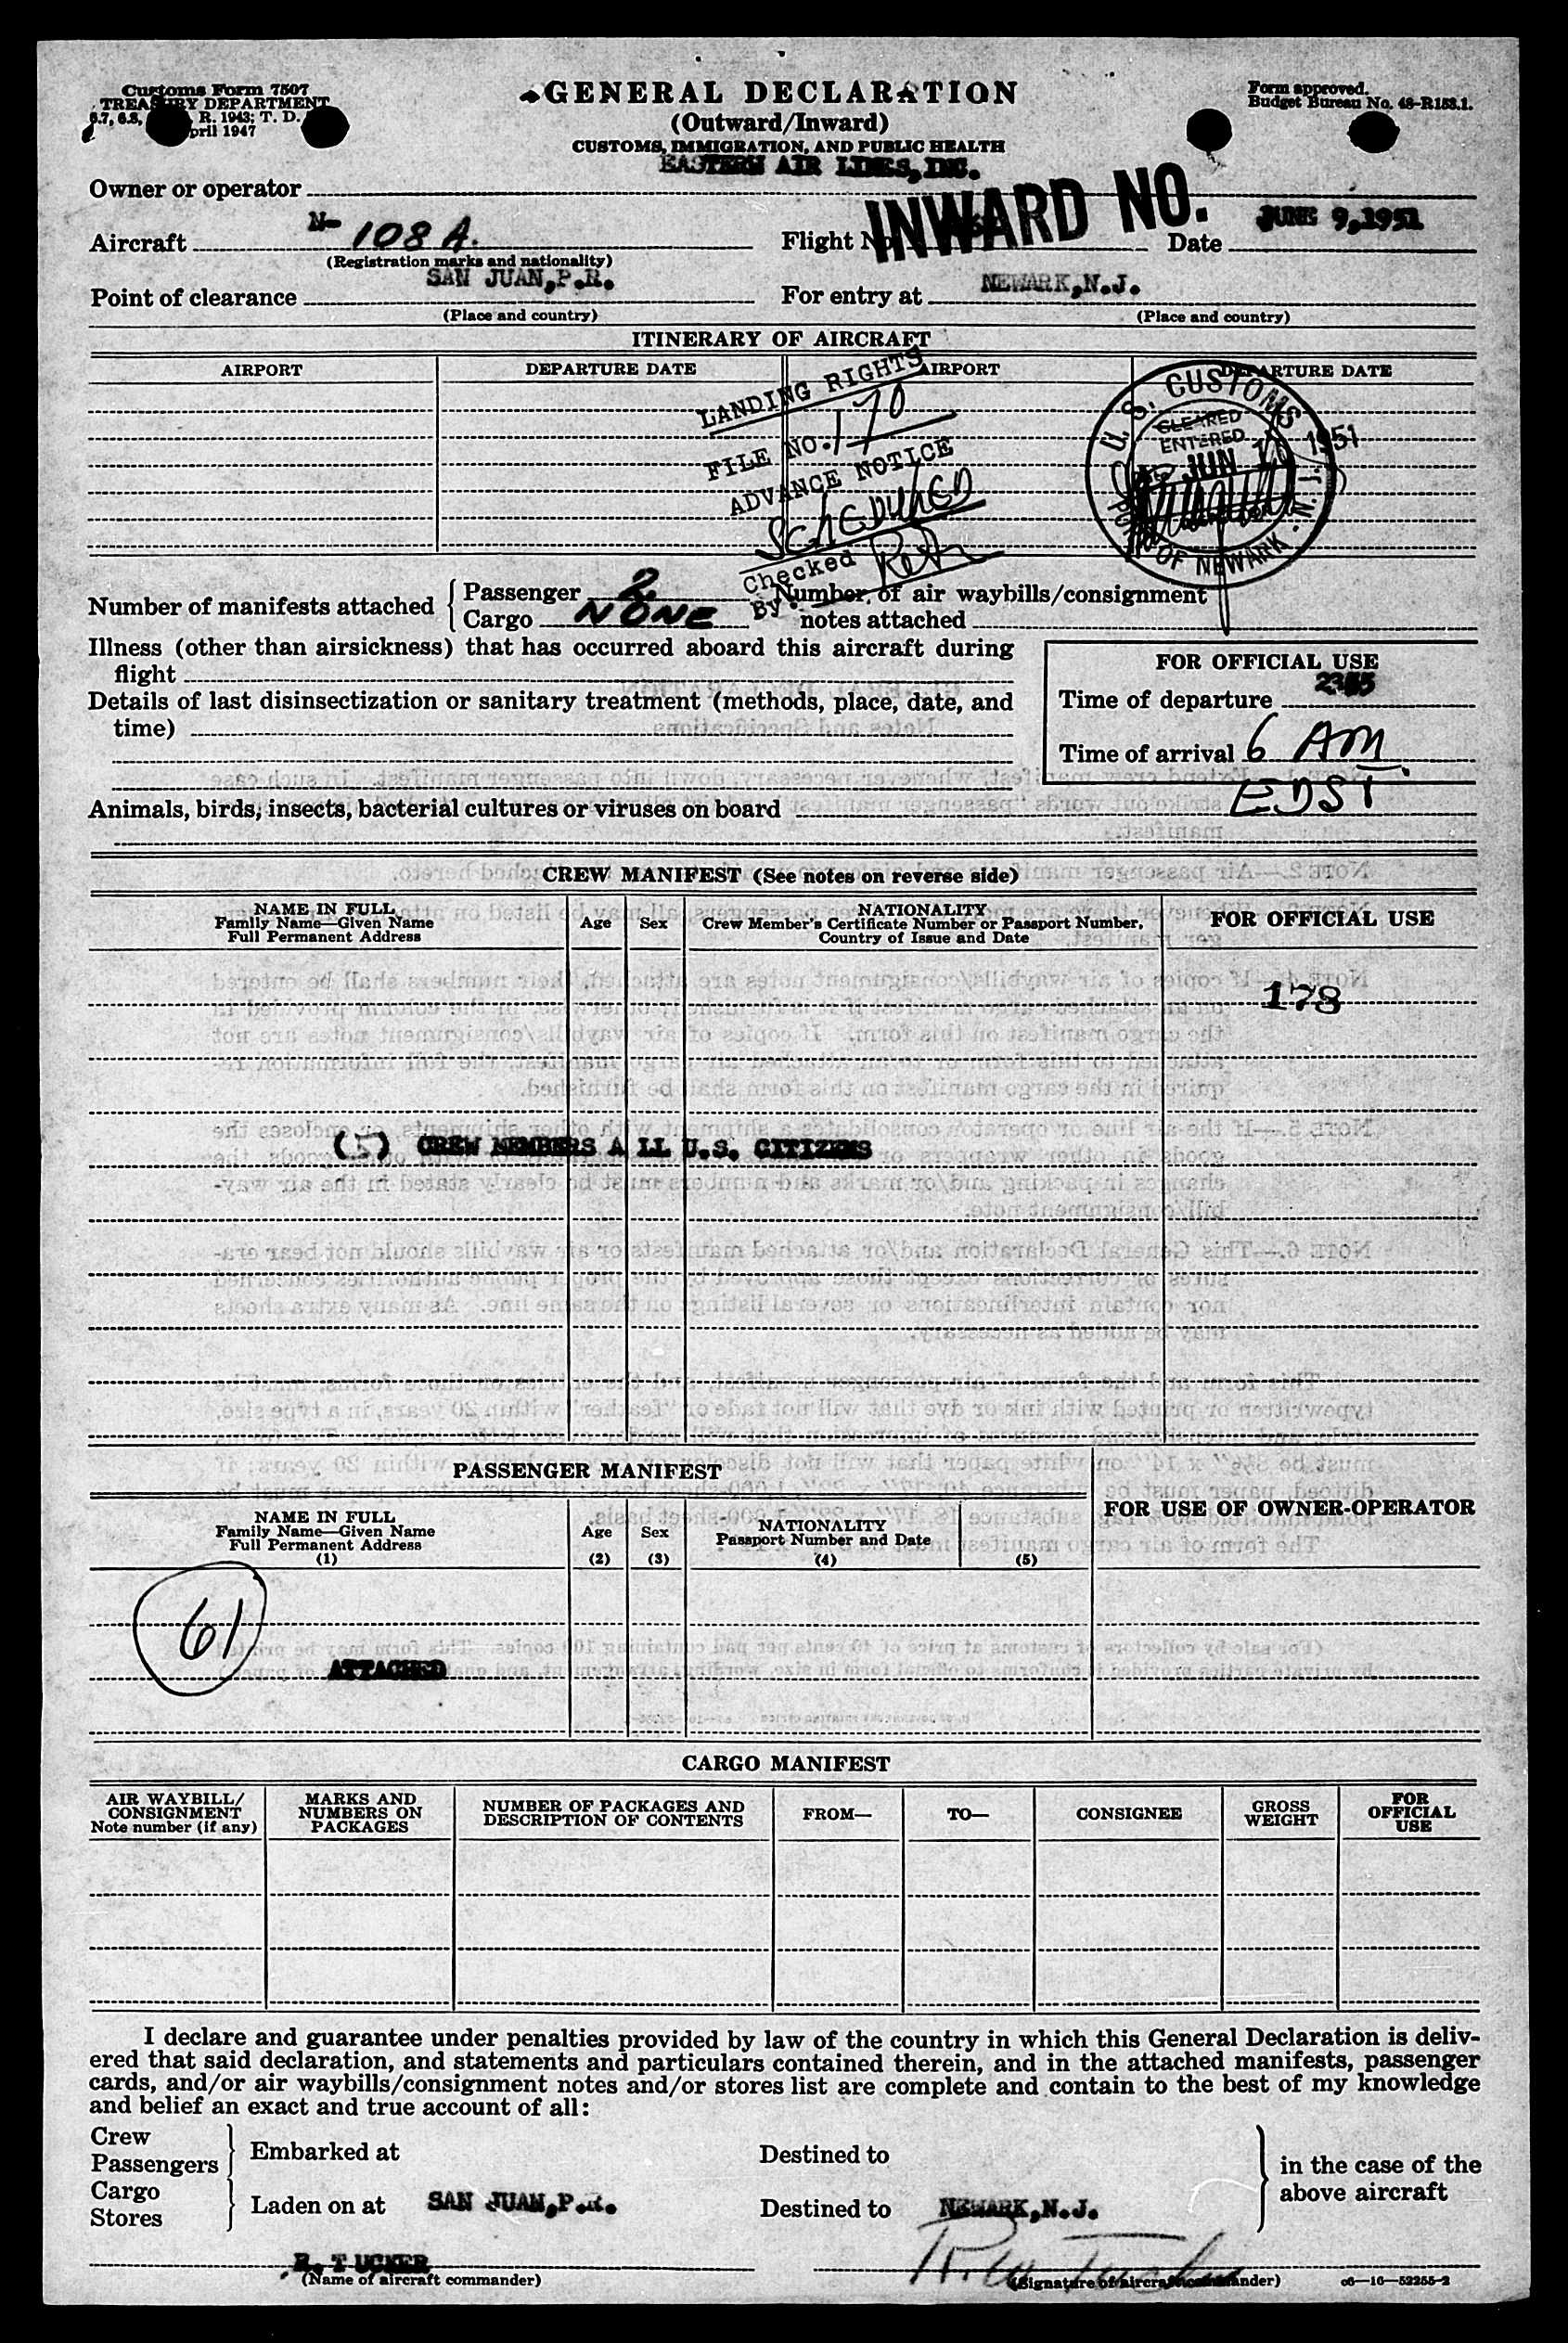 Customs Form 7507
TREASURY DEPARTMENT
6.7, 6.8, R. 1943; T. D.
April 1947
GENERAL DECLARATION
(Outward/Inward)
CUSTOMS, IMMIGRATION, AND PUBLIC HEALTH
Form approved.
Budget Bureau No. 48-R153.1.
EASTERN AIR LINES, INC.
Owner or operator
INWARD NO.
Aircraft N- 108 A. Flight No. Date JUNE 9, 1951
(Registration marks and nationality)
Point of clearance SAN JUAN, P.R. For entry at NEWARK, N.J.
(Place and country) (Place and country)
ITINERARY OF AIRCRAFT
AIRPORT DEPARTURE DATE AIRPORT DEPARTURE DATE
LANDING RIGHTS
FILE NO. 170
ADVANCE NOTICE
SCHEDULED
Checked
By
U. S. CUSTOMS
CLEARED
ENTERED
JUN 10 1951
PORT OF NEWARK . N. J.
Number of manifests attached { Passenger 2 Number of air waybills/consignment
Cargo NONE notes attached
Illness (other than airsickness) that has occurred aboard this aircraft during
flight
Details of last disinsectization or sanitary treatment (methods, place, date, and
time)
FOR OFFICIAL USE
Time of departure
Time of arrival 6 AM
EDST
Animals, birds, insects, bacterial cultures or viruses on board
CREW MANIFEST (See notes on reverse side)
NAME IN FULL
Family Name—Given Name
Full Permanent Address
Age
Sex
NATIONALITY
Crew Member's Certificate Number or Passport Number,
Country of Issue and Date
FOR OFFICIAL USE
178
(5) CREW MEMBERS A LL U.S. CITIZENS
PASSENGER MANIFEST
FOR USE OF OWNER-OPERATOR
NAME IN FULL
Family Name—Given Name
Full Permanent Address
(1)
Age
(2)
Sex
(3)
NATIONALITY
Passport Number and Date
(4) (5)
61
ATTACHED
CARGO MANIFEST
AIR WAYBILL/
CONSIGNMENT
Note number (if any)
MARKS AND
NUMBERS ON
PACKAGES
NUMBER OF PACKAGES AND
DESCRIPTION OF CONTENTS
FROM—
TO—
CONSIGNEE
GROSS
WEIGHT
FOR
OFFICIAL
USE
I declare and guarantee under penalties provided by law of the country in which this General Declaration is deliv-
ered that said declaration, and statements and particulars contained therein, and in the attached manifests, passenger
cards, and/or air waybills/consignment notes and/or stores list are complete and contain to the best of my knowledge
and belief an exact and true account of all:
Crew
Passengers } Embarked at Destined to
Cargo
Stores } Laden on at SAN JUAN, P.R. Destined to NEWARK, N.J.
in the case of the
above aircraft
R. TUCKER
(Name of aircraft commander) (Signature of aircraft commander) c6—16—52255-2